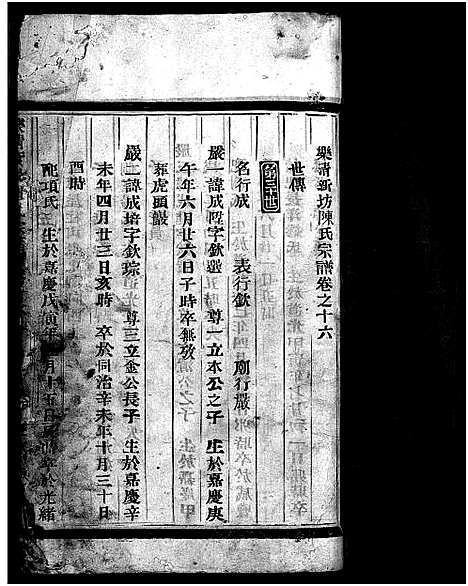 樂清新坊陳氏宗譜卷之十六
世傳
第三十世
名行成　表行欽　廟行嚴
嚴一諱成陞字欽選　尊一立本公之子　生於嘉慶庚
午年六月廿六日子時卒無攷
葬虎頭巖
嚴二諱成培字欽琮　尊三立金公長子　生於嘉慶辛
未年四月廿三日亥時　卒於同治辛未年十月三十日
酉時
配項氏　生於嘉慶戊寅年　月十五日　時卒於光緒